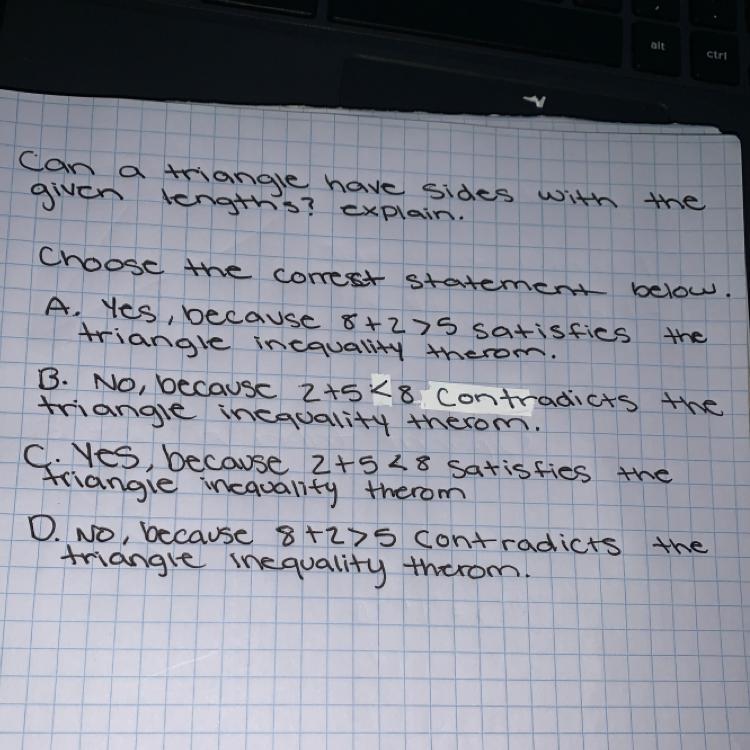 alt
ctrl
Can a triangle have sides with the
given lengths? explain.
Choose the correct statement below.
A. Yes, because 8+2>5 satisfies the
triangle inequality therom.
B. No, because 2+5<8 contradicts the
triangle inequality therom.
C. Yes, because 2+5<8 satisfies the
triangle inequality therom
D. No, because 8+2>5 contradicts the
triangle inequality therom.